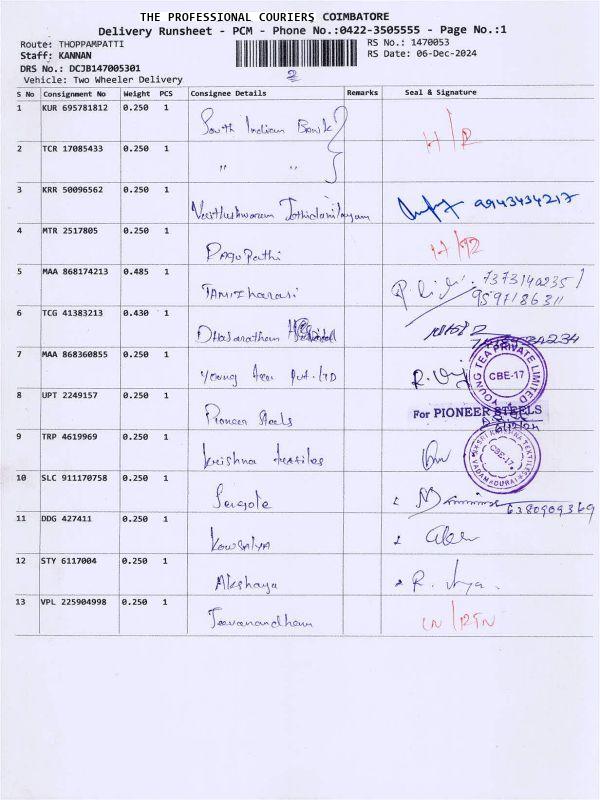 THE PROFESSIONAL COURIERS COIMBATORE
Delivery Runsheet - PCM - Phone No.:0422-3505555 - Page No.:1
Route: THOPPAMPATTI
RS No.: 1470053
Staff: KANNAN
RS Date: 06-Dec-2024
DRS No.: DCJB147005301
Vehicle: Two Wheeler Delivery
2
S No Consignment No Weight PCS Consignee Details Remarks Seal & Signature
1 KUR 695781812 0.250 1 South Indian Bank
2 TCR 17085433 0.250 1 " "
3 KRR 50096562 0.250 1 9943434217
4 MTR 2517805 0.250 1 Ragupathi
5 MAA 868174213 0.485 1 TAMIZharasi 7373140235
9597186311
6 TCG 41383213 0.430 1 Dhasaratham
7 MAA 868360855 0.250 1 Young Tea Pvt.LTD R. Vij YOUNG TEA PRIVATE LIMITED CBE-17
8 UPT 2249157 0.250 1 Pioneer Steels For PIONEER STEELS
6/12/24
9 TRP 4619969 0.250 1 krishna textiles CBE-17
10 SLC 911170758 0.250 1 6380909369
11 DDG 427411 0.250 1 KowSALYA
12 STY 6117004 0.250 1 Akshaya R.
13 VPL 225904998 0.250 1 Jeevanandham LN/RTN